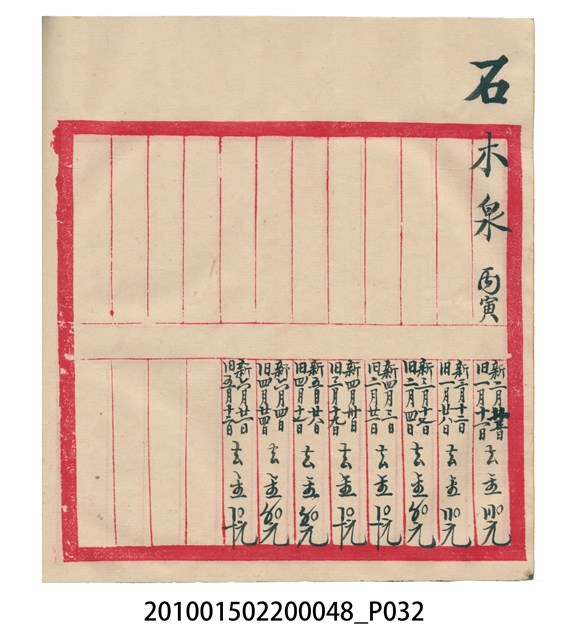 石木泉 丙寅
新二月廿三日
旧一月十一日 去
新三月十二日
旧一月廿八日 去
新三月十七日
旧二月四日 去
新四月三日
旧二月廿一日 去
新四月卅日
旧三月十九日 去
新五月廿八日
旧四月十七日 去
新六月四日
旧四月廿四日 去
新六月廿一日
旧五月十二日 去
201001502200048_P032